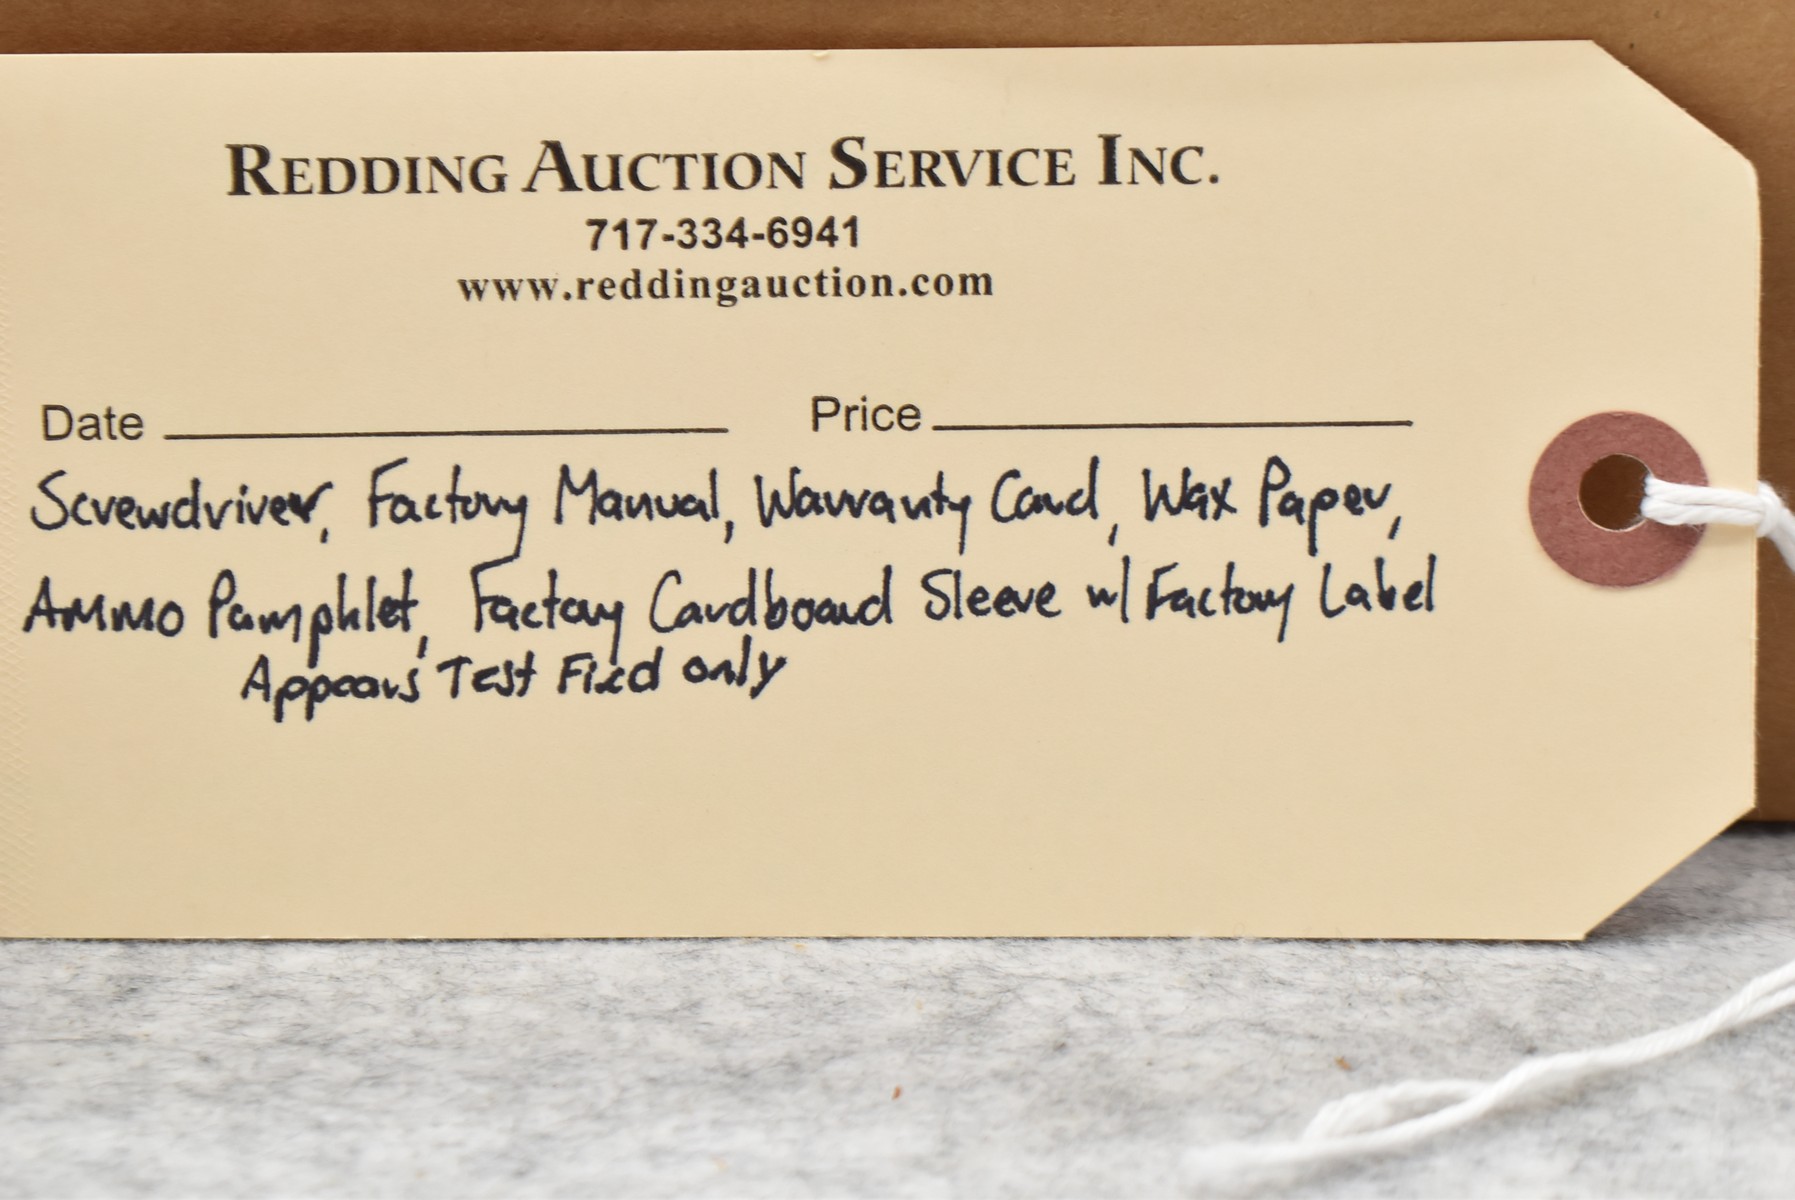 REDDING AUCTION SERVICE INC.
717-334-6941
www.reddingauction.com
Date Price
Screwdriver, Factory Manual, Warranty Card, Wax Paper,
Ammo Pamphlet, Factory Cardboard Sleeve w/ Factory Label
Appears Test Fired only